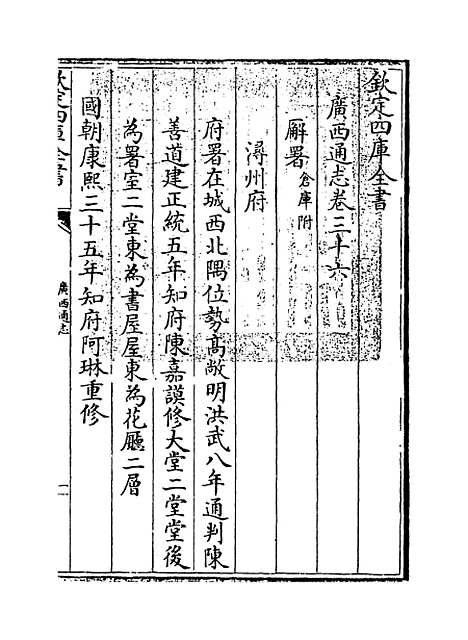 欽定四庫全書
廣西通志卷三十六
廨署倉庫附
潯州府
府署在城西北隅位勢高敞明洪武八年通判陳
善道建正統五年知府陳嘉謨修大堂二堂堂後
為署室二堂東為書屋屋東為花廳二層
國朝康熙三十五年知府阿琳重修
廣西通志